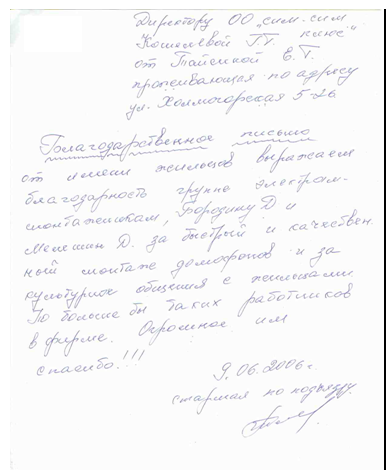 Директору ОО „сим-сим
Кошелевой Г.Г. плюс"
от Тайенкой Е.Т.
проживающая по адресу
ул. Холмогорская 5-26
Благодарственное письмо
от имени жильцов выражаем
благодарность группе электром-
монтажникам, Бородину Д и
Мелешин Д. за быстрый и качествен
ный монтаж домофонов и за
культурное общения с жильцами
По больше бы таких работников
в фирме. Огромное им
спасибо!!!
9.06.2006г.
старшая по подъезду.